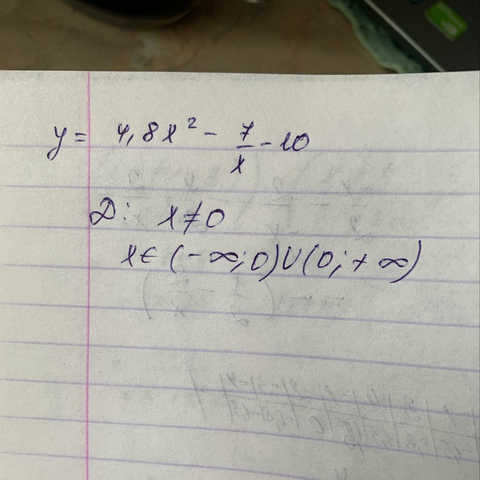 y = 4,8x² - 7/x - 10
D: x ≠ 0
x ∈ (-∞; 0) ∪ (0; +∞)